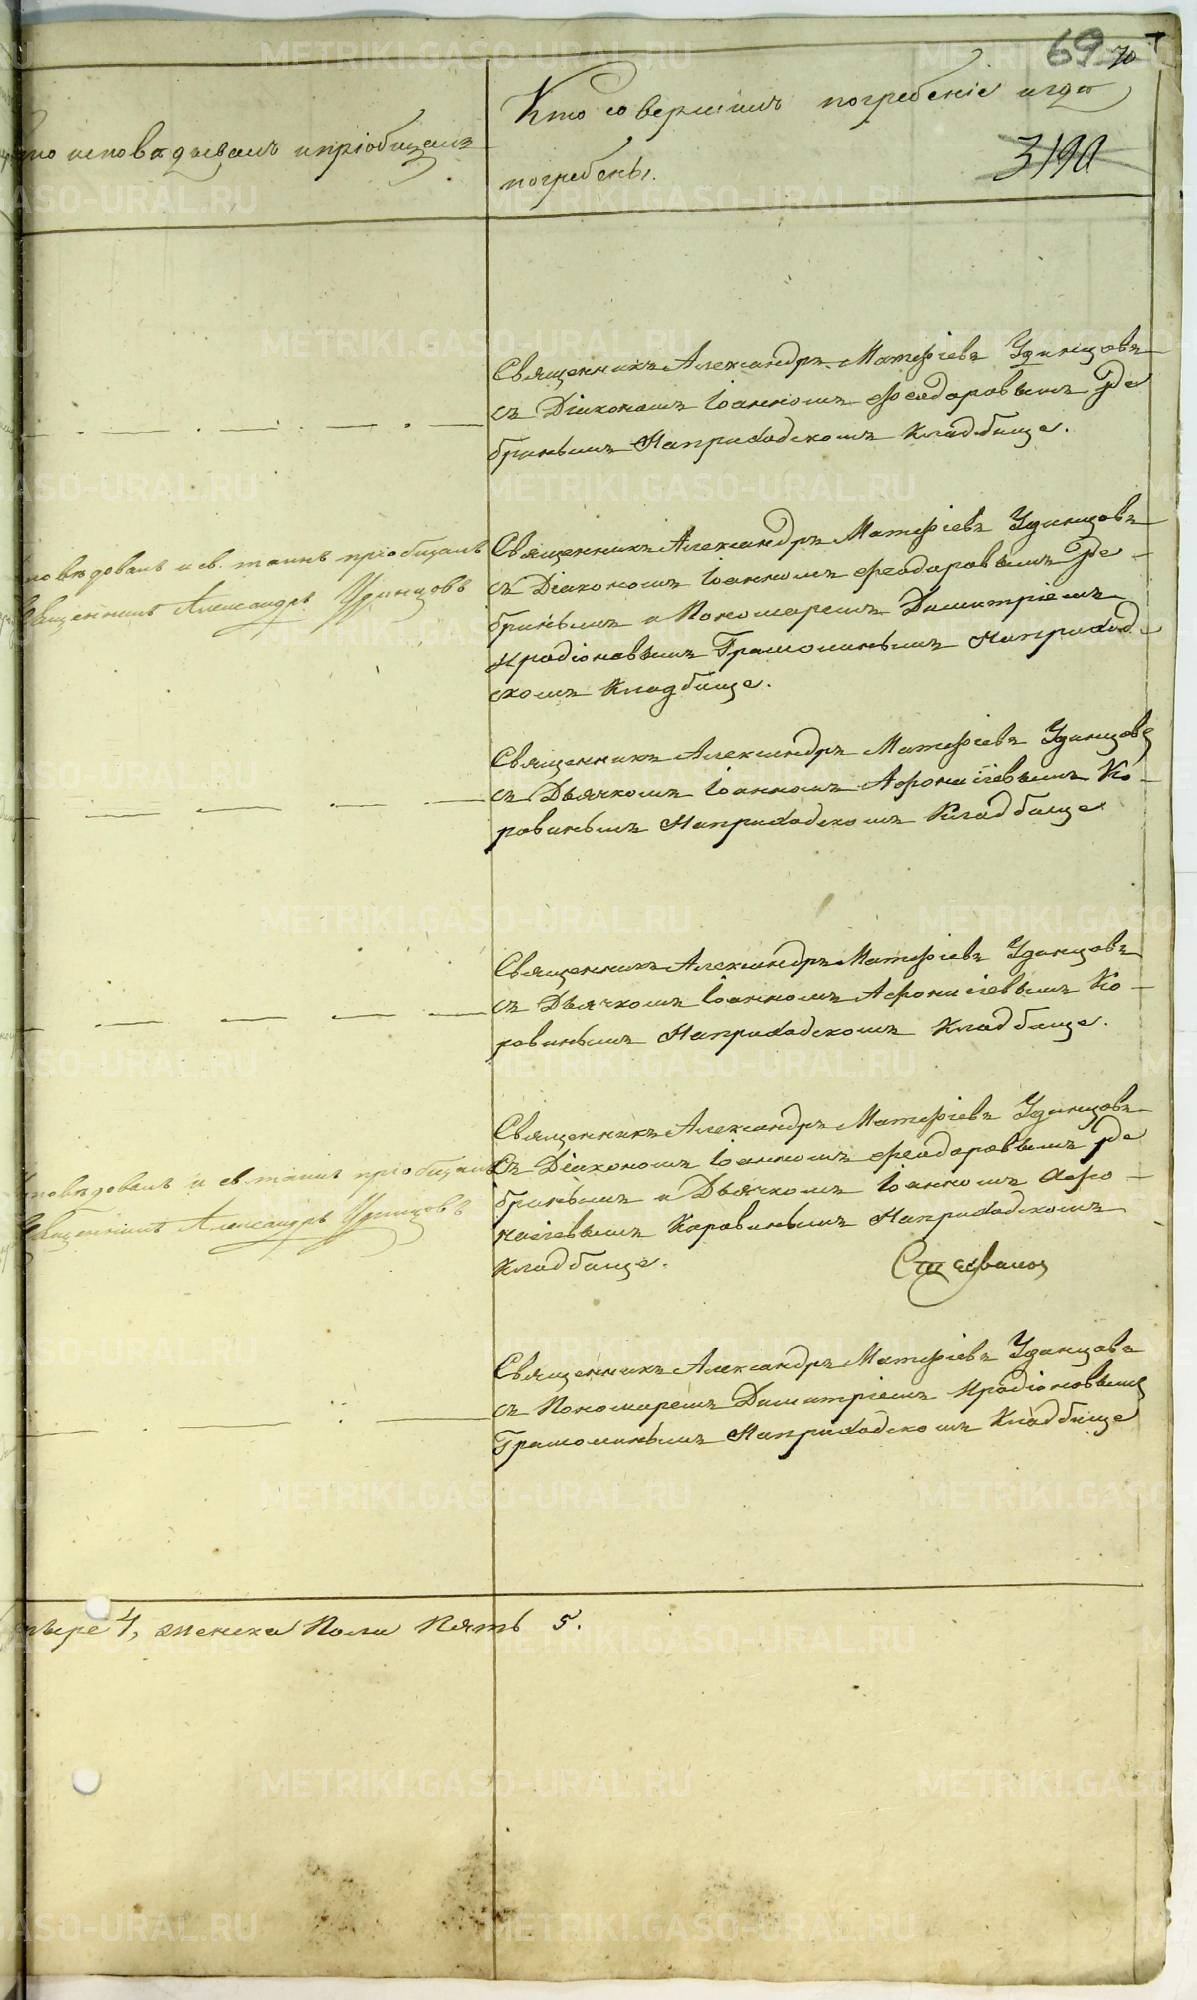 69 70
Кто исповѣдывалъ и пріобщалъ
Кто совершилъ погребеніе и гдѣ
погребены.
3190
Священникъ Александръ Матѳіевъ Удинцовъ
съ Діакономъ Іоанномъ Ѳеодоровымъ Де
бринымъ На приходскомъ Кладбище.
исповѣдовалъ и св. таинъ пріобщалъ
Священникъ Александръ Удинцовъ
Священникъ Александръ Матѳіевъ Удинцовъ
съ Діакономъ Іоанномъ Ѳеодоровымъ Де-
бринымъ и Пономаремъ Димитріемъ
Иродіоновымъ Грамолинымъ На приход-
скомъ Кладбище.
Священникъ Александръ Матѳіевъ Удинцовъ
съ Дьячкомъ Іоанномъ Афонасіевымъ Ко-
ровинымъ На приходскомъ Кладбище
Священникъ Александръ Матѳіевъ Удинцовъ
съ Дьячкомъ Іоанномъ Афонасіевымъ Ко-
ровинымъ На приходскомъ Кладбище.
исповѣдовалъ и св. таинъ пріобщалъ
Священникъ Александръ Удинцовъ
Священникъ Александръ Матѳіевъ Удинцовъ
Съ Діакономъ Іоанномъ Ѳеодоровымъ Де
бринымъ и Дьячкомъ Іоанномъ Афо-
насіевымъ Коровинымъ На приходскомъ
Кладбище.
Священникъ Александръ Матѳіевъ Удинцовъ
съ Пономаремъ Димитріемъ Иродіоновымъ
Грамолинымъ На приходскомъ Кладбище
четыре 4, женска Пола Пять 5.